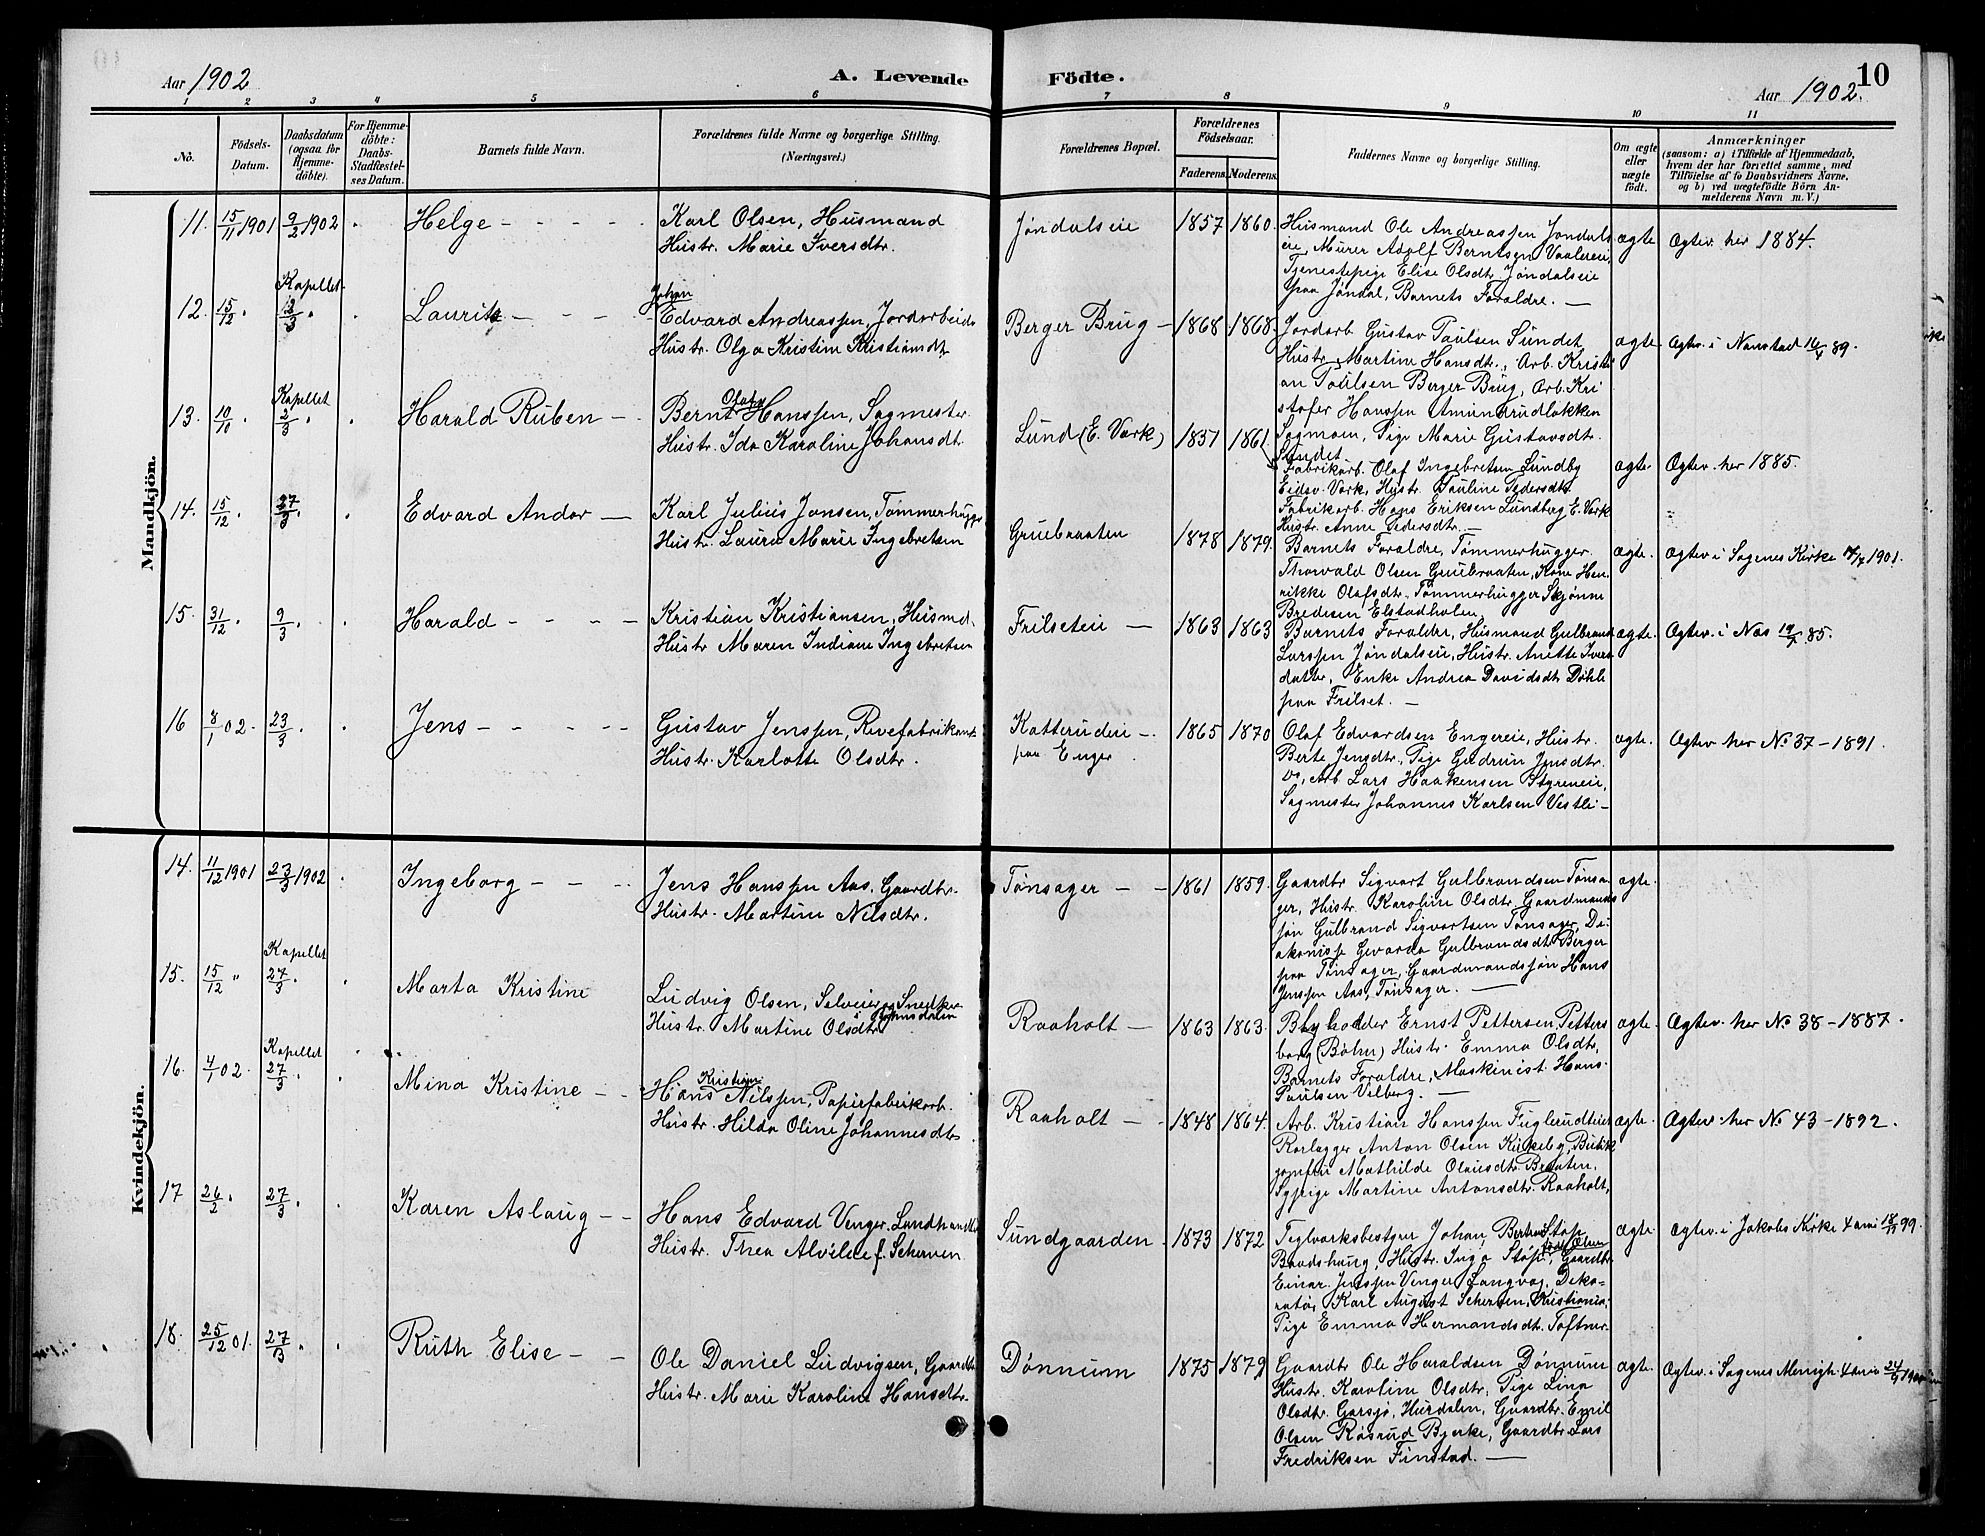 Aar 1902
A. Levende Födte.
10
Aar 1902.
1 2 3 4 5 6 7 8 9 10 11
No.
Födsels-
Datum.
Daabsdatum
(ogsaa for
Hjemme-
döbte).
For Hjemme-
döbte:
Daabs-
Stadfæstel-
ses Datum.
Barnets fulde Navn.
Forældrenes fulde Navne og borgerlige Stilling.
(Næringsvei.)
Forældrenes Bopæl.
Forældrenes
Födselsaar.
Faderens. Moderens.
Faddernes Navne og borgerlige Stilling.
Om ægte
eller
uægte
födt.
Anmærkninger
(saasom: a) i Tilfælde af Hjemmedaab,
hvem der har forrettet samme, med
Tilföielse af to Daabsvidners Navne,
og b) ved uægtefödte Börn An-
melderens Navn m. V.)
Mandkjön.
11. 15/11 1901 9/2 1902 Helge
Karl Olsen, Husmand
Hustr. Marie Iversdtr.
Jøndalseie 1857 1860.
Husmand Ole Andreassen Jøndals
eie, Murer Adolf Berntsen Vaalereie,
Tjenestepige Elise Olsdtr. Jøndalseie
paa Jøndal, Barnets Forældre. —
ægte Ægtev. her 1884.
Kapellet
12. 15/12 2/3 Lauritz
Johan
Edvard Andreassen, Jordarbeid.
Hustr. Olga Kristine Kristiansdt.
Berger Brug — 1868 1868.
Jordarb. Gustav Paulsen Sundet,
Hustr. Martine Hansdtr., Arb. Kristi
an Paulsen Berger Brug, Arb. Kri
stofer Hanssen Amundrudløkken
Sagmoen, Pige Marie Gustavsdtr.
Sundet
ægte. Ægtev. i Nannestad 89.
Kapellet
13. 10/10 2/3 Harald Ruben —
Olaf
Bernt Hanssen, Sagmester
Hustr. Ida Karoline Johansdt.
Lund (E. Værk) 1857 1861.
Fabrikarb. Olaf Ingebretsen Lundby
Eidsv. Værk, Hustr. Pauline Pedersdtr.
Fabrikarb. Hans Eriksen Lundberg E. Værk
Hustr. Anne Pedersdtr. —
ægte. Ægtev. her 1885.
14. 15/12 27/3 Edvard Andor —
Karl Julius Jansen, Tømmerhugger
Hustr. Laura Marie Ingebretsen
Gruebraaten 1878 1879.
Barnets Forældre, Tømmerhugger
Thorvald Olsen Gruebraaten, Kone Hen
rikke Olafsdtr. Tømmerhugger Skjønne
Bredesen Elstadholen
ægte. Ægtev. i Sagenes Kirke 1901.
15. 31/12 9/3 Harald
Kristian Kristiansen, Husmd.
Hustr. Maren Indiane Ingebretsen
Frilseteie — 1863 1863
Barnets Forældre, Husmand Gulbrand
Larssen Jøndalseie, Hustr. Anette Ivers
datter, Enke Andrea Davidsdt. Døhle
paa Frilset. —
ægte. Ægtev. i Næs 85.
16 8/1 02. 23/3 Jens
Gustav Jenssen, Rivefabrikant
Hustr. Karlotte Olsdtr.
Katterudeie —
paa Enger
1865 1870
Olaf Edvardsen Engereie, Hustr.
Berte Jensdtr., Pige Gudrun Jensdtr.
Arb. Lars Haakensen Styreneie,
Sagmester Johannes Karlsen Vestli —
ægte. Ægtev. her No. 37 — 1891.
Kvindekjön.
14. 11/12 1901 23/3 1902 Ingeborg
Jens Hanssen Aas, Gaardbr.
Hustr. Martine Nilsdtr.
Tønsager — 1861 1859.
Gaardbr. Sigvart Gulbrandsen Tønsa
ger, Hustr. Karoline Olsdtr. Gaardmands
søn Gulbrand Sigvartsen Tønsager, Di
akonisse Gevarda Gulbrandsdt. Berger
paa Tønsager, Gaardmandssøn Hans
Jenssen Aas, Tønsager. —
ægte.
Kapellet
15. 15/12 27/3 Marta Kristine
Ludvig Olsen, Selveier og Snedker
Hustr. Martine Olsdtr.
Raaholt — 1863 1863.
Blyhodder Ernst Pettersen, Petters
borg (Bøhn) Hustr. Emma Olsdtr,
Barnets Forældre, Maskinist Hans
Paulsen Vilberg. —
ægte. Ægtev. her No 38 — 1887.
Kapellet
16. 4/1 02. 27/3 Mina Kristine
Kristian
Hans Nilssen, Papirfabrikarb.
Hustr. Hilda Oline Johannesdtr.
Raaholt — 1848 1864.
Arb. Kristian Hanssen Fuglerudteie
Rørlægger Anton Olsen Kirkeby, Butik
jomfru Mathilde Olausdtr. Braaten,
Sypige Martine Antonsdtr. Raaholt,
ægte. Ægtev. her No 43 — 1892.
17 26/2 27/3 Karen Aslaug
Hans Edvard Venger, Landhandler
Hustr. Thea Alvilde f. Scherven
Sundgaarden. 1873 1872
Teglværksbestyrer Johan Støp
Baadshaug, Hustr. Inga Støp, Gaardbr.
Einar Jenssen Venger Langvag, Deko-
ratør, Karl August Scherven, Kristiania,
Pige Emma Hermandsdt. Toftner.
ægte. Ægtev. i Jakobs Kirke Xania 99.
18. 25/12 01. 27/3 Ruth Elise
Ole Daniel Ludvigsen, Gaardbr.
Hustr. Marie Karoline Hansdtr.
Dønnum 1875 1879
Gaardbr Ole Haraldsen Dønnum
Hustr. Karoline Olsdtr, Pige Lina
Olsdtr. Garsjø, Hurdalen, Gaardbr. Emil
Olsen Røsrud Bjerke, Gaardbr. Lars
Fredriksen Finstad. —
ægte. Ægtev. i Sagenes Menigh. Xania